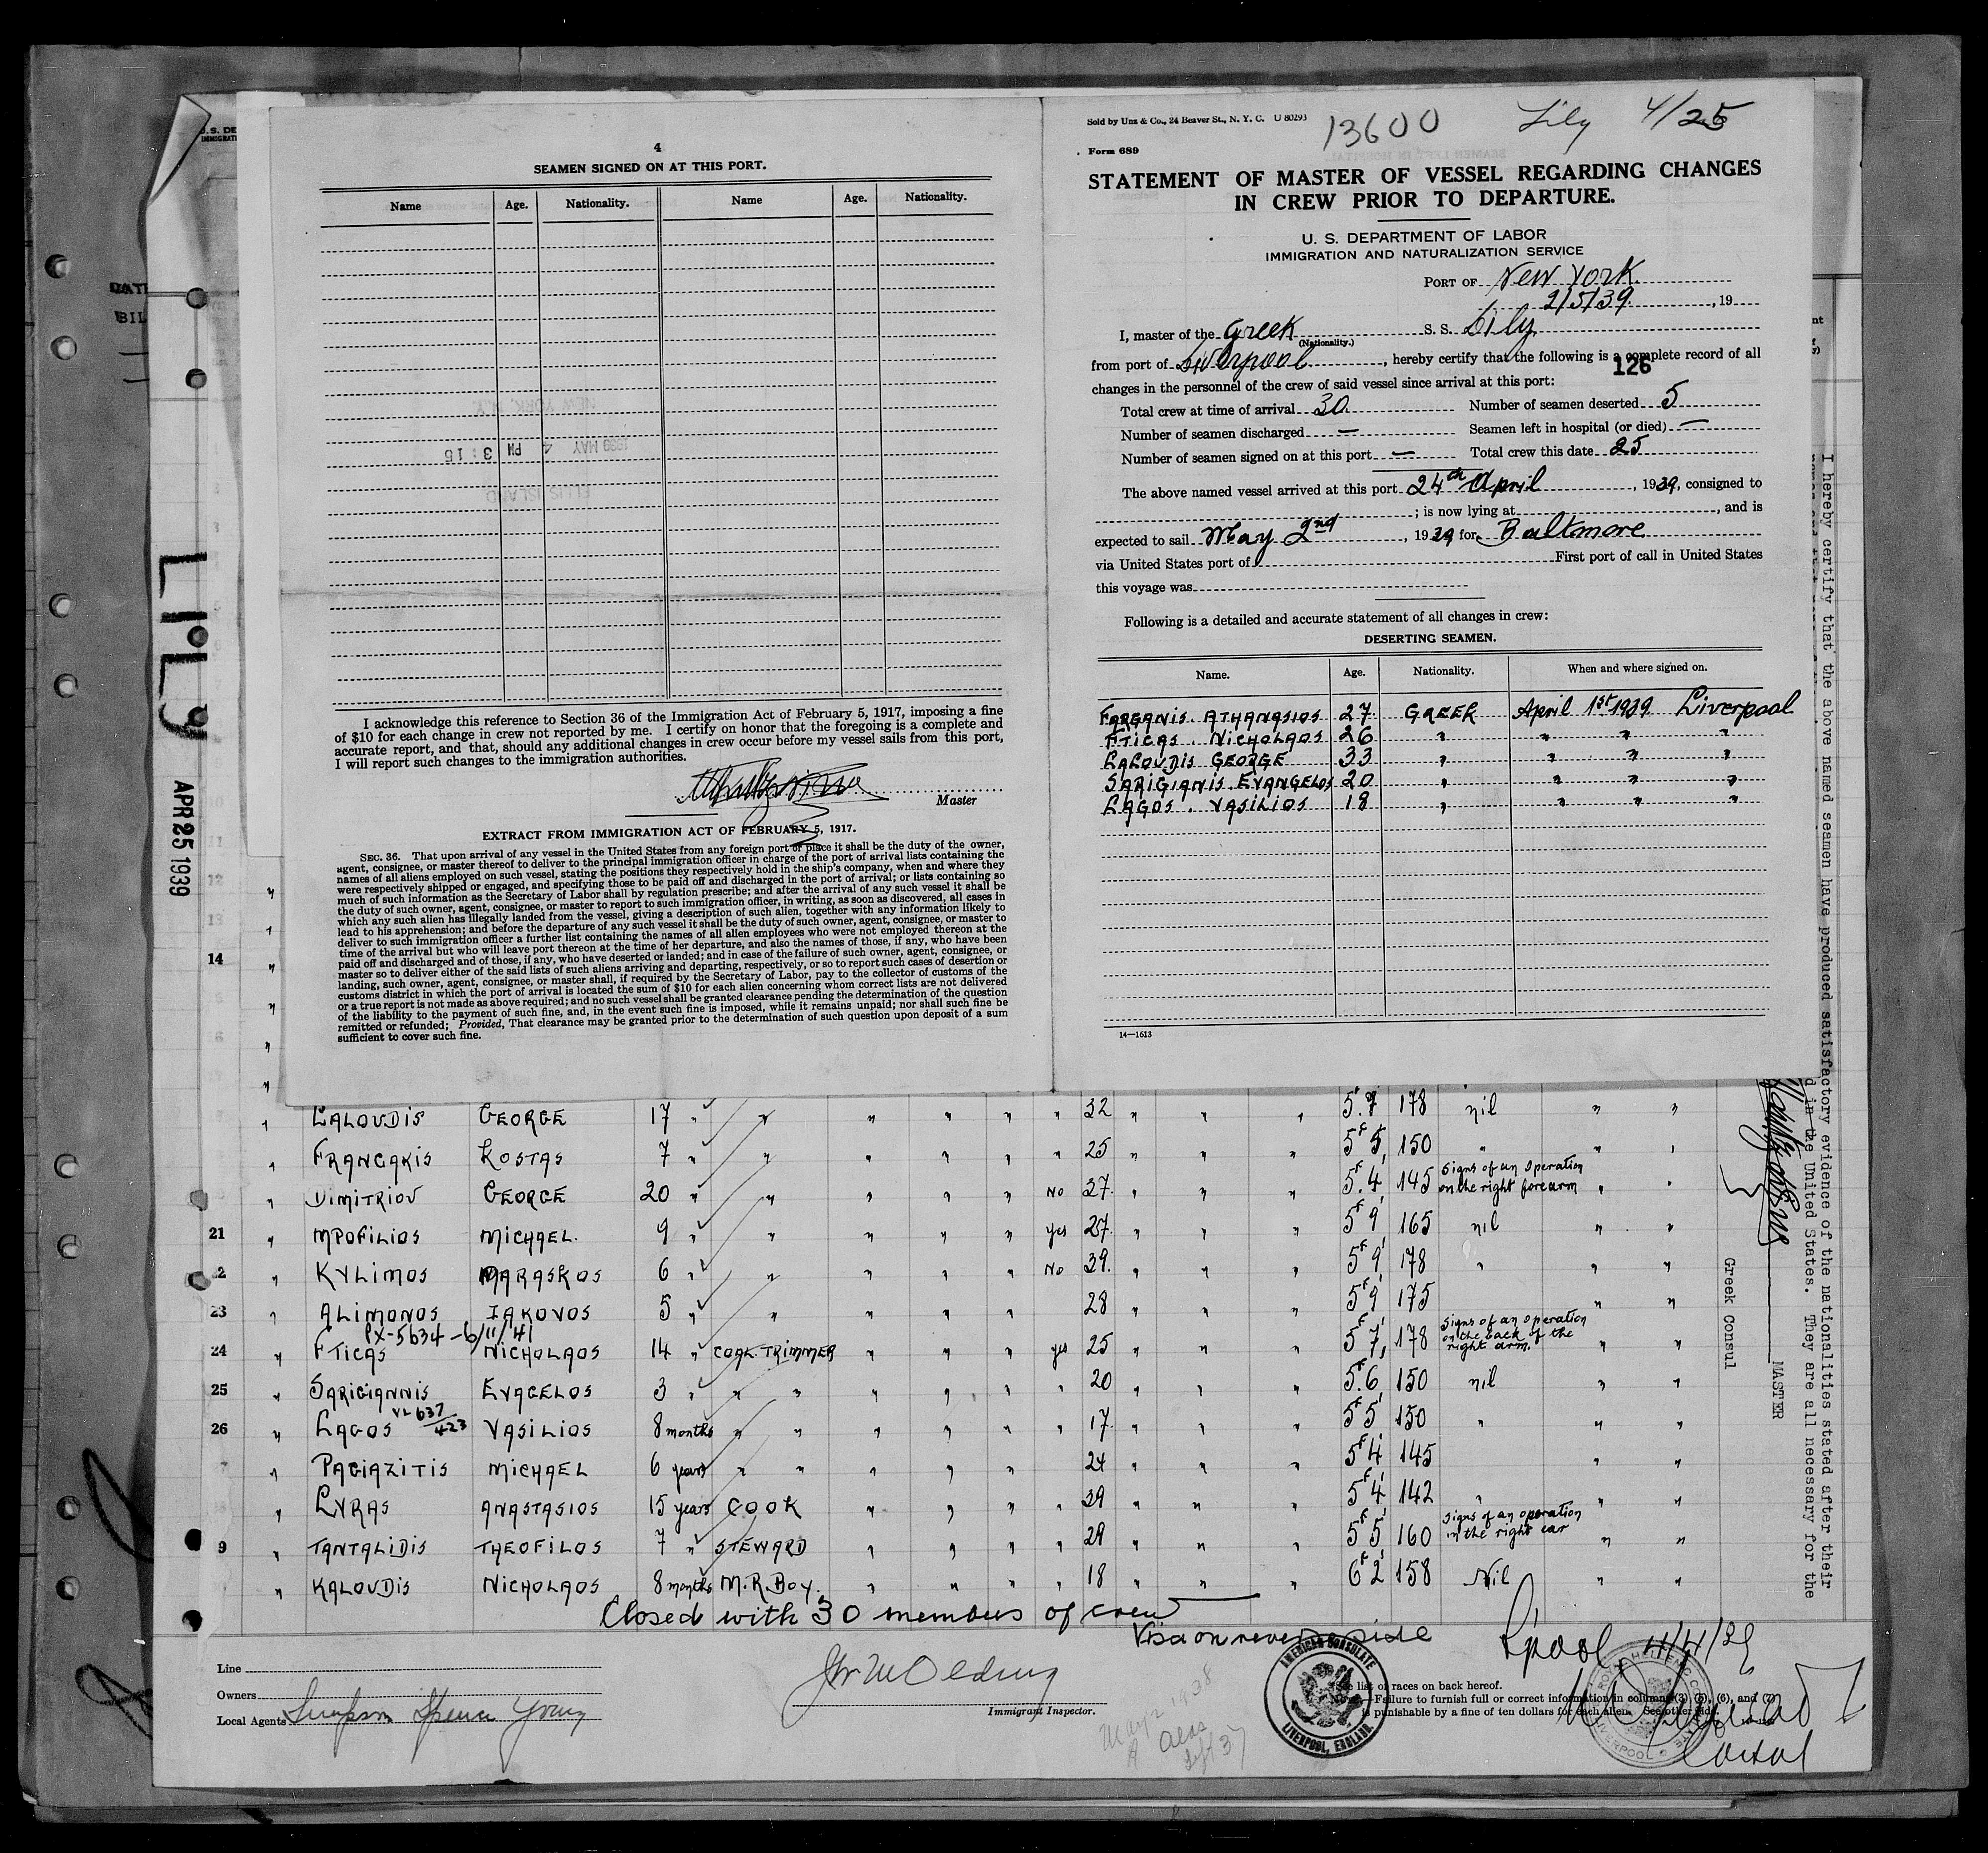 U.S. DE
IMMIGRATI
DATE
BIL
LiLy
APR 25 1939
4
SEAMEN SIGNED ON AT THIS PORT.
Name Age. Nationality. Name Age. Nationality.
NEW YORK, N.Y.
1939 MAY 4 PM 3:15
ELLIS ISLAND
I acknowledge this reference to Section 36 of the Immigration Act of February 5, 1917, imposing a fine
of $10 for each change in crew not reported by me. I certify on honor that the foregoing is a complete and
accurate report, and that, should any additional changes in crew occur before my vessel sails from this port,
I will report such changes to the immigration authorities.
Master
EXTRACT FROM IMMIGRATION ACT OF FEBRUARY 5, 1917.
SEC. 36. That upon arrival of any vessel in the United States from any foreign port or place it shall be the duty of the owner,
agent, consignee, or master thereof to deliver to the principal immigration officer in charge of the port of arrival lists containing the
names of all aliens employed on such vessel, stating the positions they respectively hold in the ship's company, when and where they
were respectively shipped or engaged, and specifying those to be paid off and discharged in the port of arrival; or lists containing so
much of such information as the Secretary of Labor shall by regulation prescribe; and after the arrival of any such vessel it shall be
the duty of such owner, agent, consignee, or master to report to such immigration officer, in writing, as soon as discovered, all cases in
which any such alien has illegally landed from the vessel, giving a description of such alien, together with any information likely to
lead to his apprehension; and before the departure of any such vessel it shall be the duty of such owner, agent, consignee, or master to
deliver to such immigration officer a further list containing the names of all alien employees who were not employed thereon at the
time of the arrival but who will leave port thereon at the time of her departure, and also the names of those, if any, who have been
paid off and discharged and of those, if any, who have deserted or landed; and in case of the failure of such owner, agent, consignee, or
master so to deliver either of the said lists of such aliens arriving and departing, respectively, or so to report such cases of desertion or
landing, such owner, agent, consignee, or master shall, if required by the Secretary of Labor, pay to the collector of customs of the
customs district in which the port of arrival is located the sum of $10 for each alien concerning whom correct lists are not delivered
or a true report is not made as above required; and no such vessel shall be granted clearance pending the determination of the question
of the liability to the payment of such fine, and, in the event such fine is imposed, while it remains unpaid; nor shall such fine be
remitted or refunded; Provided, That clearance may be granted prior to the determination of such question upon deposit of a sum
sufficient to cover such fine.
Sold by Unz & Co., 24 Beaver St., N. Y. C. U 80293
13600 Lily 4/25
Form 689
STATEMENT OF MASTER OF VESSEL REGARDING CHANGES
IN CREW PRIOR TO DEPARTURE.
U. S. DEPARTMENT OF LABOR
IMMIGRATION AND NATURALIZATION SERVICE
PORT OF New York
2/5/39, 19
I, master of the Greek S. S. Lily
(Nationality.)
from port of Liverpool, hereby certify that the following is a complete record of all
126
changes in the personnel of the crew of said vessel since arrival at this port:
Total crew at time of arrival 30 Number of seamen deserted 5
Number of seamen discharged — Seamen left in hospital (or died) —
Number of seamen signed on at this port — Total crew this date 25
The above named vessel arrived at this port 24th April, 1939, consigned to
; is now lying at , and is
expected to sail May 2nd, 1939 for Baltimore
via United States port of First port of call in United States
this voyage was
Following is a detailed and accurate statement of all changes in crew:
DESERTING SEAMEN.
Name. Age. Nationality. When and where signed on.
FARGANIS. ATHANASIOS 27 GREEK April 1st 1939 Liverpool
FTICAS. NICHOLAOS 26 " " " "
LALOUDIS GEORGE 33 " " " "
SARIGIANIS EVANGELOS 20 " " " "
LAGOS. VASILIOS 18 " " " "
14—1613
14
" LALOUDIS GEORGE 17 " " " " " " 32 " " " 5.7 178 nil " "
" FRANGAKIS KOSTAS 7 " " " " " " 25 " " " 5f 5, 150 " " "
" DIMITRIOU GEORGE 20 " " " " " No 37 " " " 5.4 145 signs of an operation on the right forearm " "
21 " MPOFILIOS MICHAEL. 9 " " " " " yes 27 " " " 5f 9 165 nil " "
2 " KYLIMOS PARASKOS 6 " " " " " No 39 " " " 5f 9 178 " " "
23 " ALIMONOS IAKOVOS 5 " " " " " 28 " " " 5f 9 175 " "
PX-5634-6/11/41
24 " FTICAS NICHOLAOS 14 " COAL TRIMMER " " " yes 25 " " " 5f 7, 178 signs of an operation on the back of the right arm. " "
25 " SARIGIANNIS EVAGELOS 3 " " " " " " " 20 " " " 5.6 150 nil " "
26 " LAGOS VL 637/423 VASILIOS 8 months " " " " " " 17 " " " 5f 5 150 " " "
7 " PAGIAZITIS MICHAEL 6 years " " " " " " 24 " " " 5f 4 145 " "
" LYRAS ANASTASIOS 15 years COOK " " " " 39 " " " 5f 4 142 " " "
9 " TANTALIDIS THEOFILOS 7 " STEWARD " " " " 29 " " " 5f 5 160 signs of an operation in the right ear " "
" KALOUDIS NICHOLAOS 8 months M.R. Boy. " " " " 18 " " " 6f 2 158 Nil " "
Closed with 30 members of crew
Visa on reverse side
L'pool 4/4/39
Line
Owners
Local Agents Simpson Spence Young
Immigrant Inspector.
AMERICAN CONSULATE
LIVERPOOL, ENGLAND
ROYAL HELLENIC CONSULATE
LIVERPOOL
See list of races on back hereof.
Note.—Failure to furnish full or correct information in columns (3) (5), (6), and (7)
is punishable by a fine of ten dollars for each alien. See other side.
Consul
I hereby certify that the above named seamen have produced satisfactory evidence of the nationalities stated after their
d in the United States. They are all necessary for the
MASTER
Greek Consul